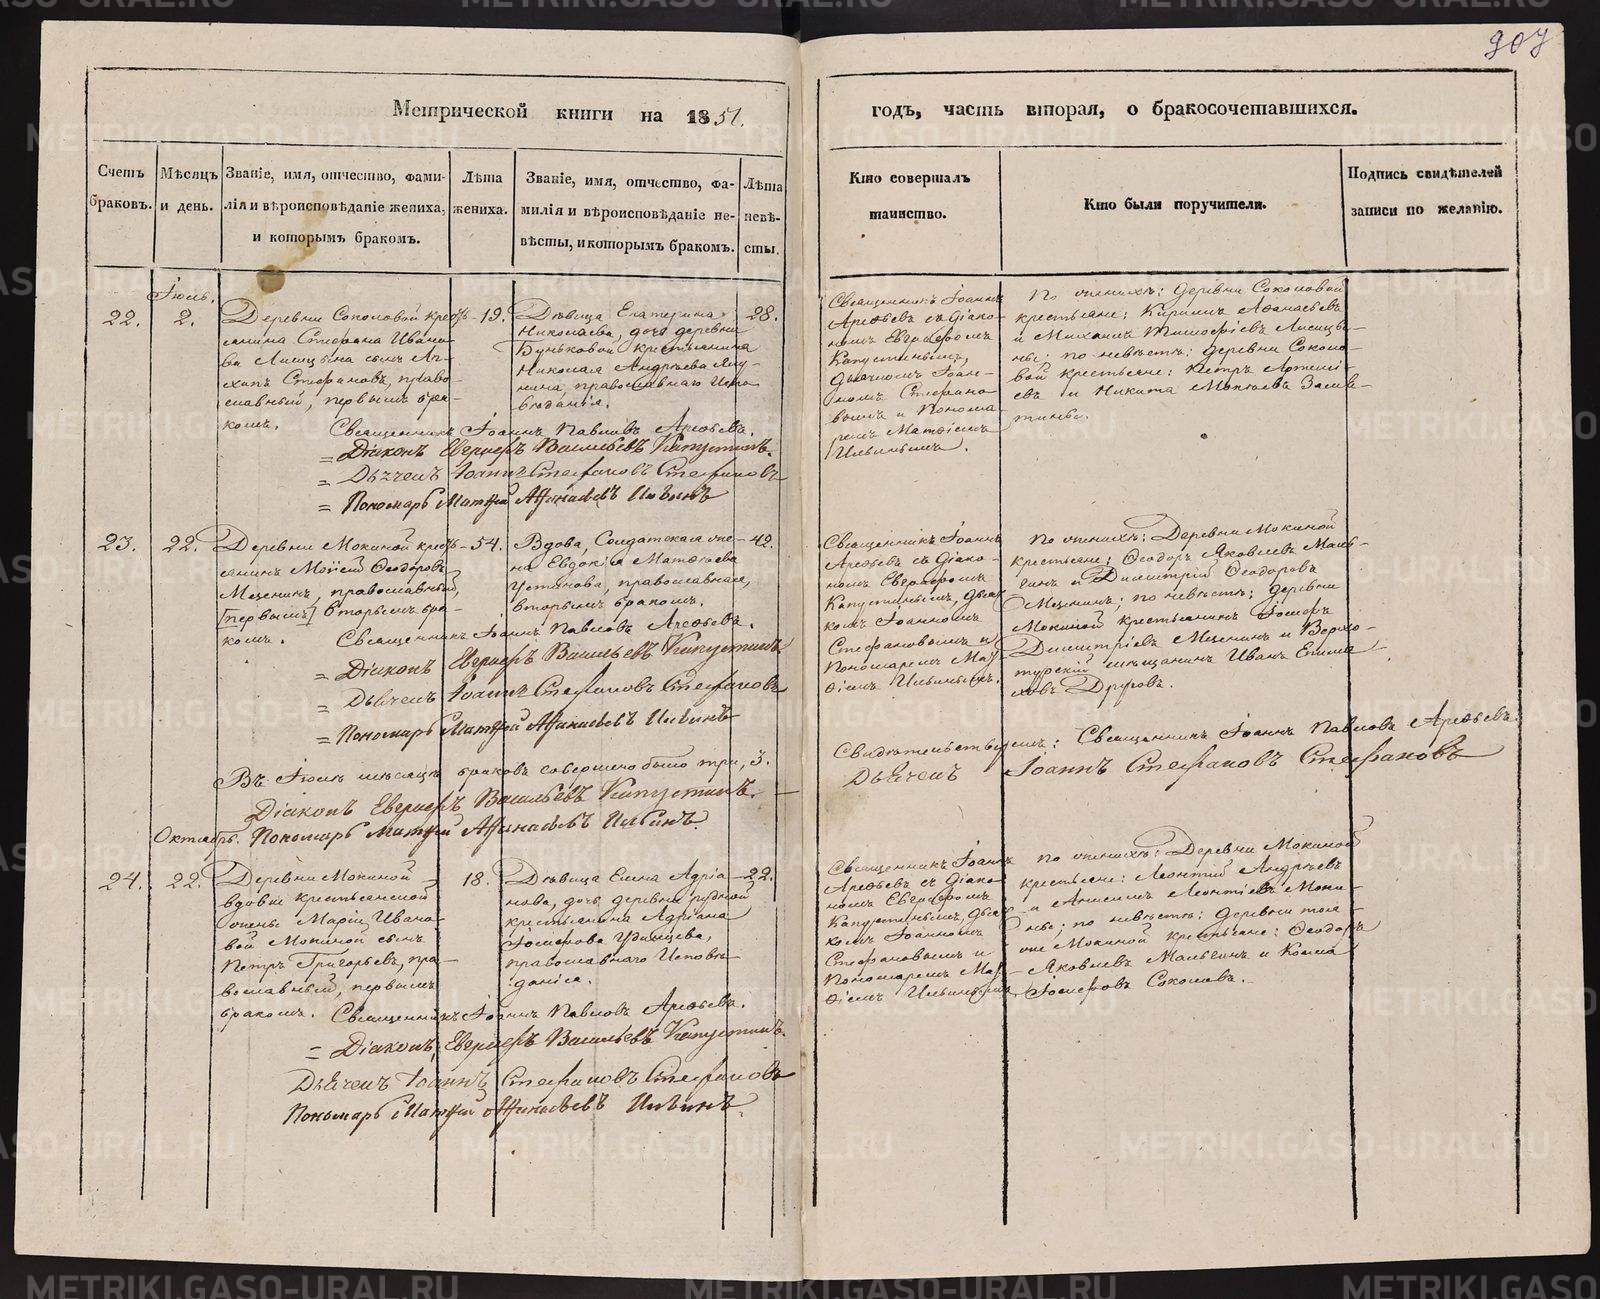 907
Метрической книги на 1851.
годъ, часть вторая, о бракосочетавшихся.
Счетъ браковъ.
Мѣсяцъ и день.
Званіе, имя, отчество, фами-
лія и вѣроисповѣданіе жениха,
и которымъ бракомъ.
Лѣта
жениха.
Званіе, имя, отчество, фа-
милія и вѣроисповѣданіе не-
вѣсты, и которымъ бракомъ.
Лѣта
невѣ-
сты.
Кто совершалъ
таинство.
Кто были поручители.
Подпись свидѣтелей
записи по желанію.
Іюль.
22.
2.
Деревни Соколовой кресть-
янина Стефана Ивано-
ва Лисицына сынъ
Стефановъ, право-
славный, первымъ бра-
комъ.
19.
Дѣвица Екатерина
Николаева, дочь деревни
Буньковой крестьянина
Николая Андреева
православнаго Испо-
вѣданія.
28.
Священникъ Іоаннъ
Арефьевъ съ діако-
номъ Евграфомъ
Капустинымъ,
дьячкомъ Іоан-
номъ Стефано-
вымъ и Понома-
ремъ Матѳіемъ
Ильинымъ.
По женихѣ: Деревни Соколовой
крестьяне: Кириллъ Аѳанасьевъ
и Михаилъ Тимоѳеевъ Лисицы-
ны; по невѣстѣ: деревни Соколо-
вой крестьяне: Петръ Артемі-
евъ и Никита
Священникъ Іоаннъ Павловъ Арефьевъ.
= Діаконъ Евграфъ Васильевъ Капустинъ.
= Дьячекъ Іоаннъ Стефановъ Стефановъ
= Пономарь Матѳій Афанасьевъ Ильинъ
23.
22.
Деревни Мокиной кресть-
янинъ Мойсей Ѳеодоровъ
православный,
[первымъ] вторымъ бра-
комъ.
54.
Вдова, Солдатская же-
на Евдокія Матвѣева
Устинова, православная,
вторымъ бракомъ.
42.
Священникъ Іоаннъ
Арефьевъ съ діако-
номъ Евграфомъ
Капустинымъ, дьяч-
комъ Іоанномъ
Стефановымъ и
Пономаремъ Мат-
ѳіемъ Ильинымъ.
По женихѣ: Деревни Мокиной
крестьяне: Ѳеодоръ Яковлевъ Маль-
гинъ и Димитрій Ѳеодоровъ
по невѣстѣ: деревни
Мокиной крестьянинъ Іосифъ
Димитріевъ и Верхо-
турскій мѣщанинъ Иванъ Епима-
ховъ
Священникъ Іоаннъ Павловъ Арефьевъ.
= Діаконъ Евграфъ Васильевъ Капустинъ
= Дьячекъ Іоаннъ Стефановъ Стефановъ
= Пономарь Матѳій Афанасьевъ Ильинъ
Въ Іюлѣ мѣсяцѣ браковъ совершено было три, 3.
Діаконъ Евграфъ Васильевъ Капустинъ.
Пономарь Матѳій Афанасьевъ Ильинъ.
Свидѣтельствуемъ: Священникъ Іоаннъ Павловъ Арефьевъ.
Дьячекъ Іоаннъ Стефановъ Стефановъ
Октябрь.
24.
22.
Деревни Мокиной
вдовы крестьянской
жены Маріи Ивано-
вой Мокиной сынъ
Петръ Григорьевъ, пра-
вославный, первымъ
бракомъ.
18.
Дѣвица Елена Адріа-
нова, дочь деревни Рудной
крестьянина Адріана
Іосифова Удинцева,
православнаго Исповѣ-
данія.
22.
Священникъ Іоаннъ
Арефьевъ съ діако-
номъ Евграфомъ
Капустинымъ, дьяч-
комъ Іоанномъ
Стефановымъ и
Пономаремъ Мат-
ѳіемъ Ильинымъ
По женихѣ: Деревни Мокиной
крестьяне: Леонтій Андреевъ
и Анисимъ Леонтіевъ Моки-
ны; по невѣстѣ: деревни той
же Мокиной крестьяне: Ѳеодоръ
Яковлевъ Мальгинъ и Косма
Іосифовъ Соколовъ.
Священникъ Іоаннъ Павловъ Арефьевъ.
= Діаконъ Евграфъ Васильевъ Капустинъ.
Дьячекъ Іоаннъ Стефановъ Стефановъ
Пономарь Матѳій Афанасьевъ Ильинъ.
METRIKI.GASO-URAL.RU